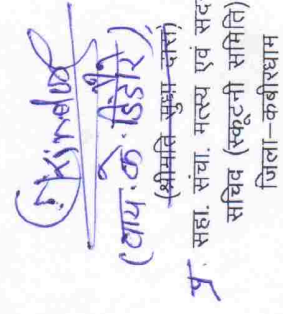 (वाय.के. डिंडोरे)
(श्रीमति सुधा दास)
प्र. सहा. संचा. मत्स्य एवं सद
सचिव (स्कूटनी समिति)
जिला–कबीरधाम